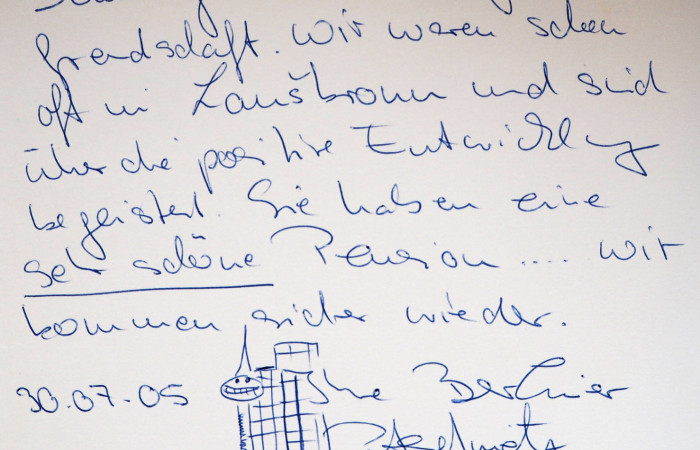 Freundschaft. Wir waren schon
oft in Lanškroun und sind
über die positive Entwicklung
begeistert. Sie haben eine
sehr schöne Pension ..... wir
kommen sicher wieder.
30.07.05 Ihre Berliner